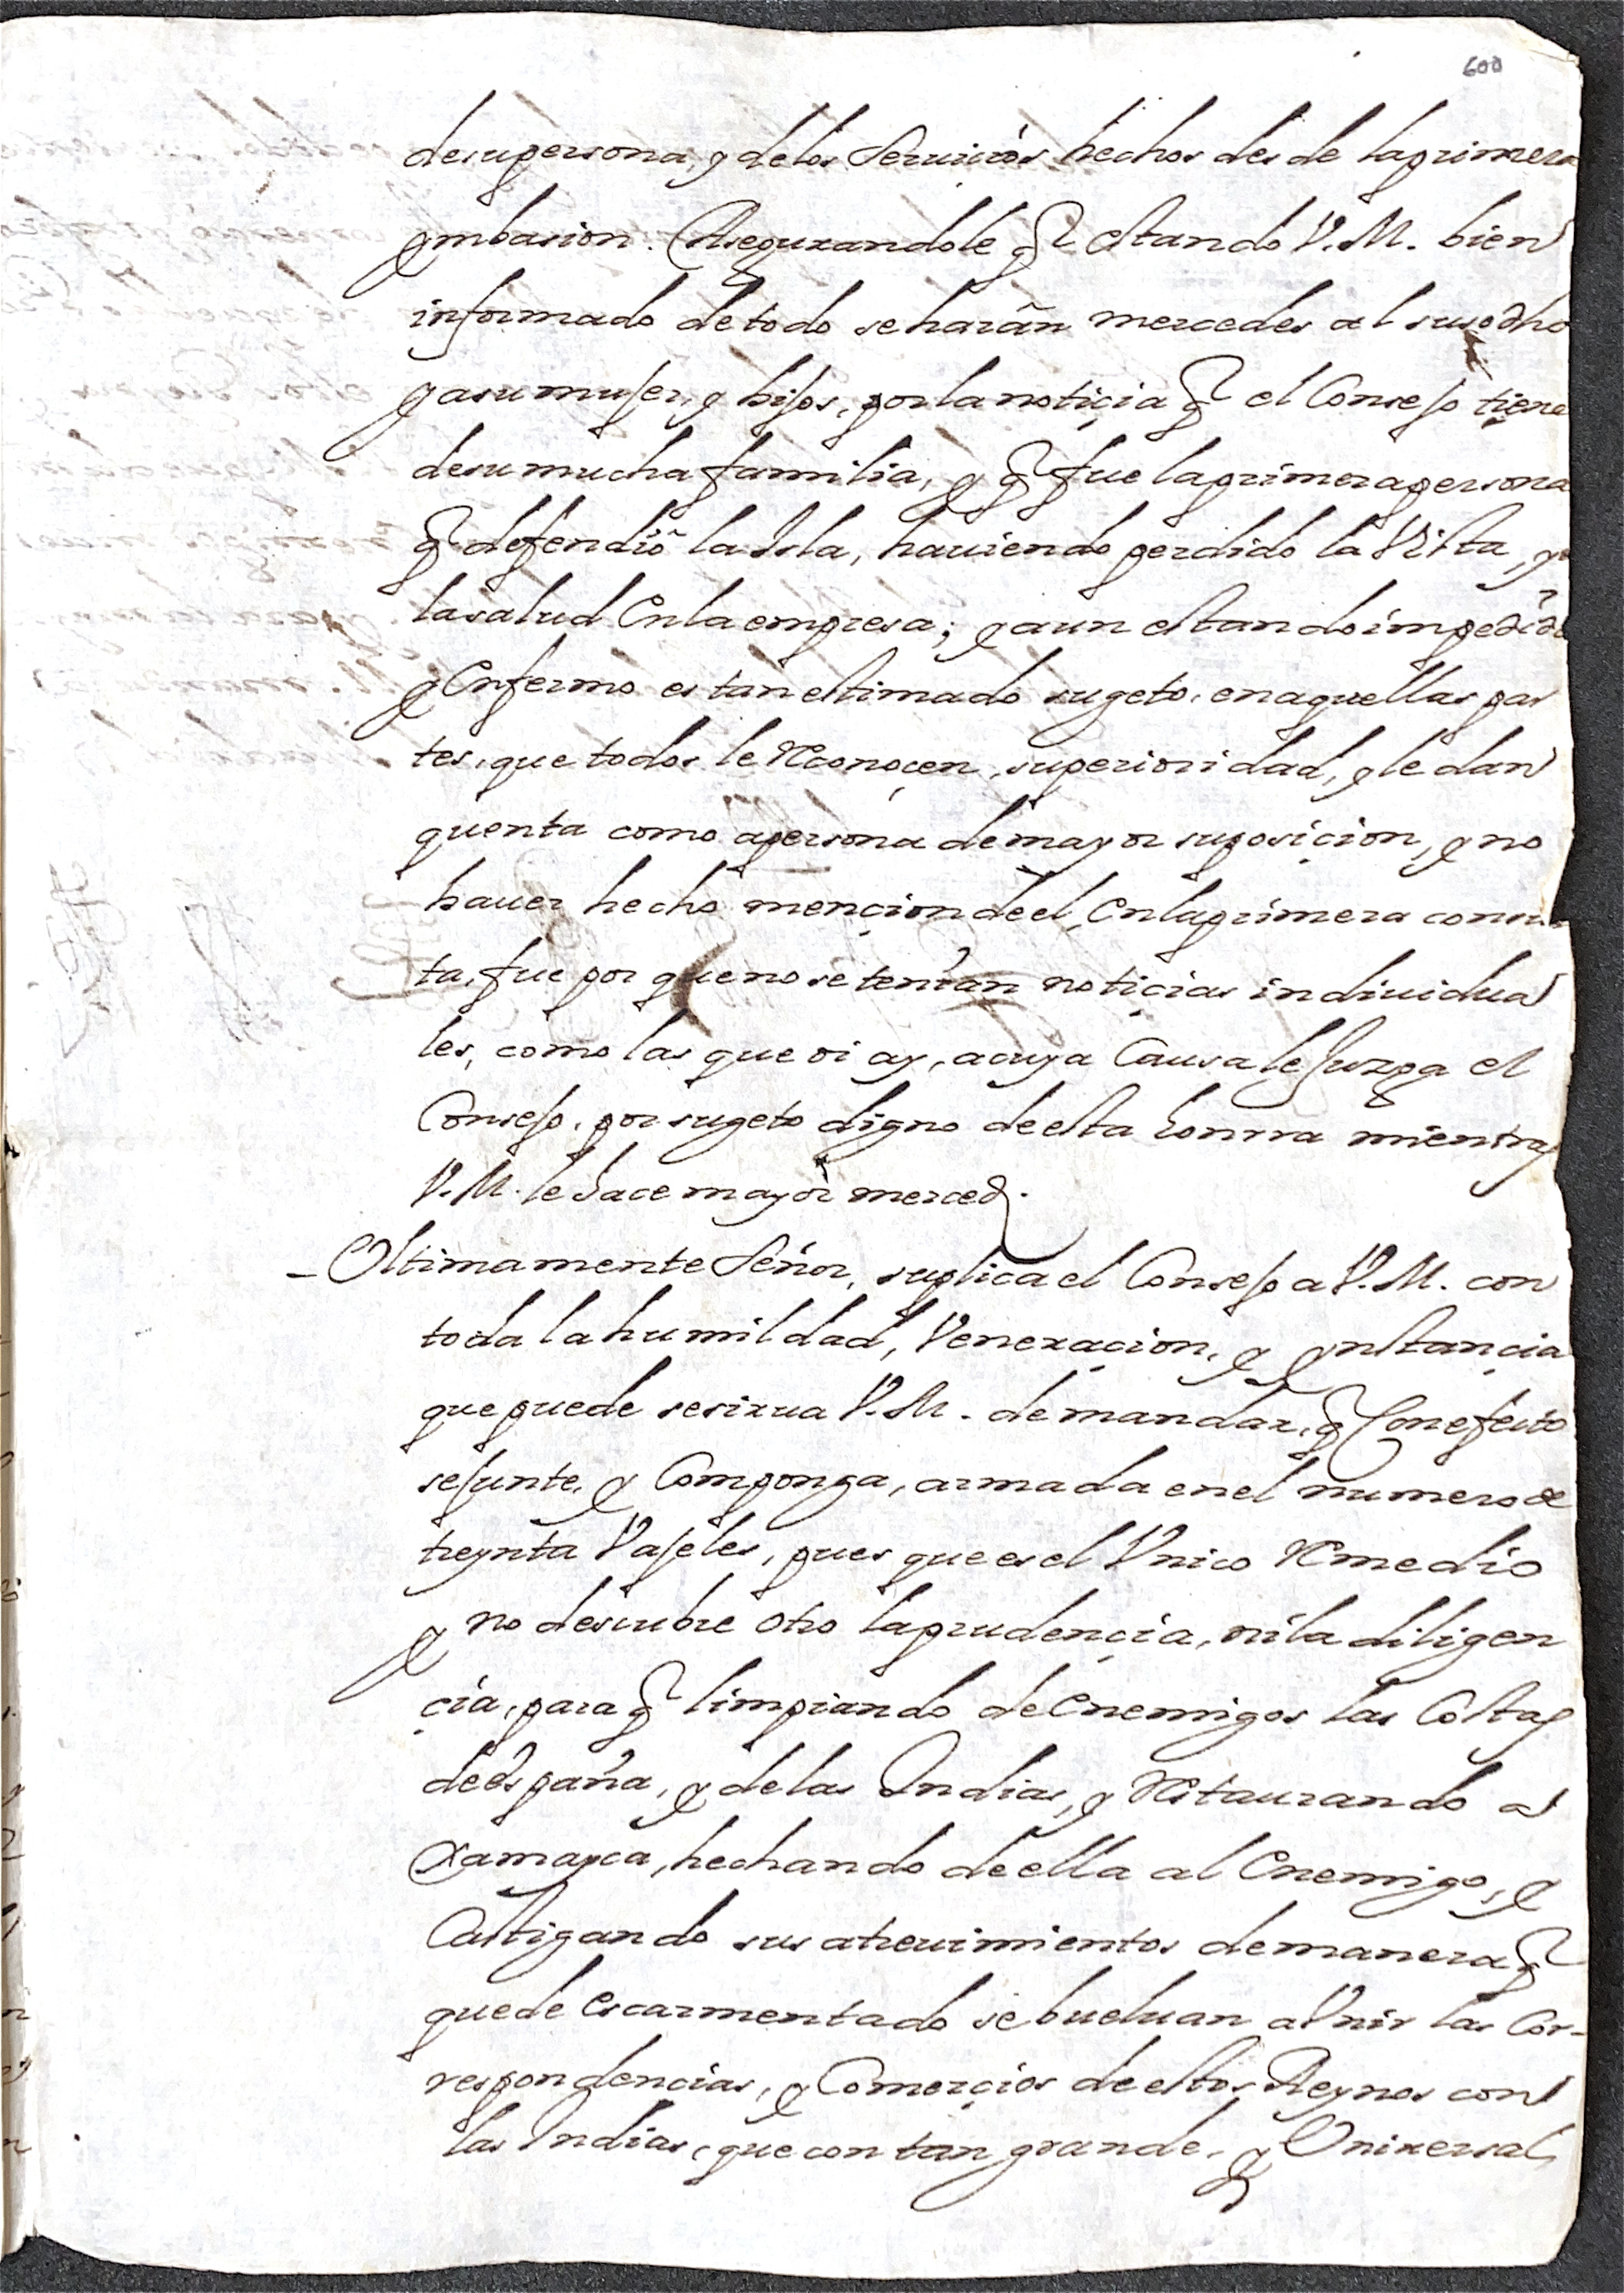 600
de su persona, y delos Seruiçios hechos desde la primera
ymbasion. Asegurandole q̃ estando V.M. bien
informado de todo se harãn mercedes al susodho
y a su muJer, y hiJos, por la notiçia q̃ el ConseJo tiene
de su mucha familia, y q̃ fue la primera persona
q̃ defendiõ la Isla, hauiendo perdido la Vista, y
la salud En la empresa; y aun estando impedido
y Enfermo es tan estimado sugeto, en aquellas par
tes, que todos le Reconoçen, superioridad, y le dan
quenta como a persona de mayor suposiçion, y no
hauer hecho mençion de el, En la primera consul
ta, fue por que no se tenian notiçias indiuidua
les, como las que oi ay, a cuya Causa le Juzga el
ConseJo, por sugeto digno de esta honrra mientras
V.M. le hace mayor merced.
- Vltimamente Señor, suplica el ConseJo a V.M. con
toda la humildad, Veneraçion, y ynstançia
que puede se sirua V.M. de mandar, q̃ Con efecto
se Junte, y Componga, armada en el numero de
treynta VaJeles, pues que es el Vnico Remedio
y no descubre otro la prudençia, ni la diligen
çia, para q̃ limpiando de Enemigos las Costas
de españa, y de las Indias, y Restaurando a
Xamayca, hechando de ella al Enemigo, y
Castigando sus atreuimientos de manera q̃
quede Escarmentado se bueluan a Vnir las Cor-
respondencias, y Comerçios de estos Reynos con
las Indias, que con tan grande, y Vniversal